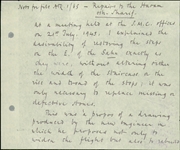 Note for file ATQ 1/35 - Repairs to the Haram
esh-Sharif.
At a meeting held at the S.M.C. offices
on 20th July, 1945, I explained the
desirability of restoring the steps
on the E. of the Sakhra exactly as
they were, without altering either
the width of the staircase or the
rise and tread of the steps; it was
only necessary to replace missing or
defective stones.
This was a propos of a drawing
produced by the new foreman in
which he proposes not only to
widen the flight but also to rebuild